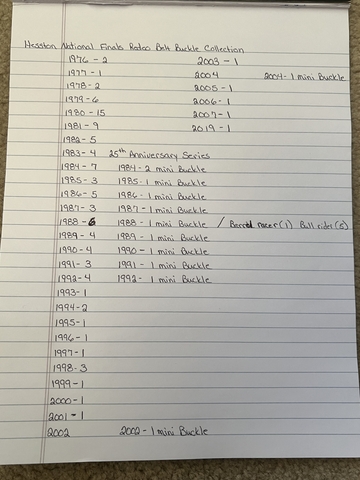 Hesston National Finals Rodeo Belt Buckle Collection
1976 - 2 2003 - 1
1977 - 1 2004 2004 - 1 mini Buckle
1978 - 2 2005 - 1
1979 - 6 2006 - 1
1980 - 15 2007 - 1
1981 - 9 2019 - 1
1982 - 5
1983 - 4 25th Anniversary Series
1984 - 7 1984 - 2 mini Buckle
1985 - 3 1985 - 1 mini Buckle
1986 - 5 1986 - 1 mini Buckle
1987 - 3 1987 - 1 mini Buckle
1988 - 6 1988 - 1 mini Buckle / Barrel racer (1) Bull rider (5)
1989 - 4 1989 - 1 mini Buckle
1990 - 4 1990 - 1 mini Buckle
1991 - 3 1991 - 1 mini Buckle
1992 - 4 1992 - 1 mini Buckle
1993 - 1
1994 - 2
1995 - 1
1996 - 1
1997 - 1
1998 - 3
1999 - 1
2000 - 1
2001 - 1
2002 2002 - 1 mini Buckle